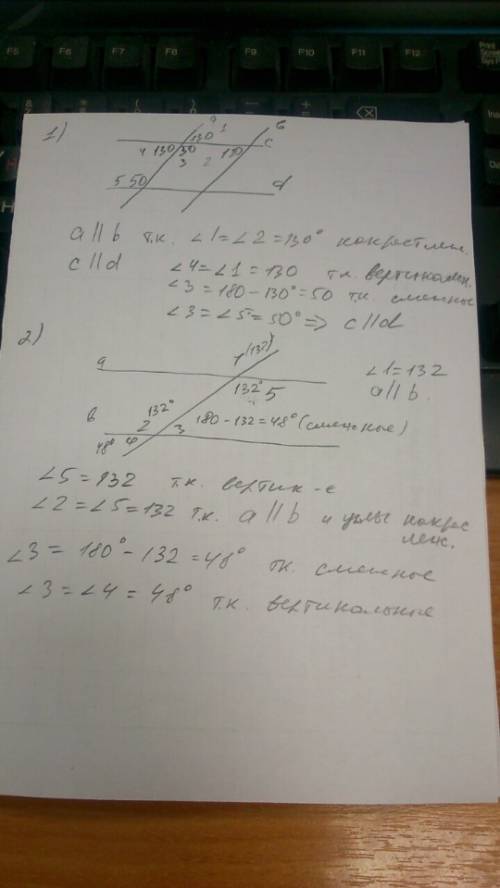 1)
a 1 в
130 c
4 130 50 2 130
3
5 50 d
a || b т.к. ∠1=∠2=130° накрест леж.
c || d ∠4=∠1=130 т.к. вертикальн.
∠3=180-130°=50 т.к. смежные
∠3=∠5=50° => c || d
2)
a 1 (132)
132° 5
∠1=132
a || b.
в 2 132° 3 180-132=48° (смежные)
48° 4
∠5=132 т.к. вертик-е
∠2=∠5=132 т.к. a || b и углы накрес
леж.
∠3= 180°-132=48° т.к. смежные
∠3=∠4=48° т.к. вертикальные